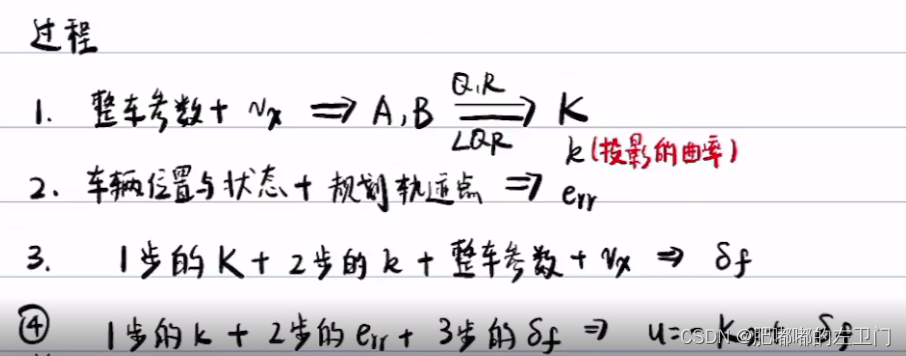 过程
1. 整车参数 + Vx ⇒ A,B Q,R ⇒ LQR K
k(投影的曲率)
2. 车辆位置与状态 + 规划轨迹点 ⇒ err
3. 1步的K + 2步的k + 整车参数 + Vx ⇒ δf
④ 1步的k + 2步的err + 3步的δf ⇒ u=-K δf
CSDN @肥嘟嘟的左卫门